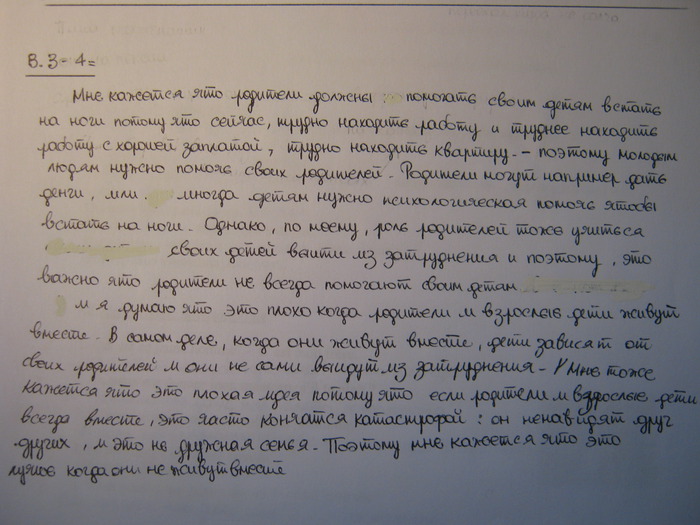 В. 3 - 4 =
Мне кажется что родители должны помогать своим детям встать
на ноги потому что сейчас, трудно находить работу и труднее находить
работу с хорошей заплатой, трудно находить квартиру. - поэтому молодым
людям нужно помочь своих родителей. Родители могут например дать
денги, или. иногда детям нужно психологическая помочь чтобы
встать на ноги. Однако, по моему, роль родителей тоже учиться
своих детей выйти из затруднения и поэтому, это
важно что родители не всегда помогают своим детям
и я думаю что это плохо когда родители и взрослые дети живут
вместе. В самом деле, когда они живут вместе, дети зависят от
своих родителей и они не сами выйдут из затруднения - Мне тоже
кажется что это плохая идея потому что если родители и вдрослые дети
всегда вместе, это часто кончатся катастрофой: он ненавидят друг
других, и это не дружная семья. Поэтому мне кажется что это
лучше когда они не живут вместе